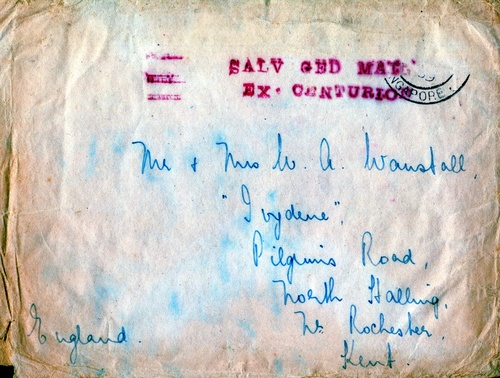 SALV GED MAIL
EX. CENTURION
NGAPORE.
Mr & Mrs W. A. Wanstall,
"Ivydene",
Pilgrims Road,
North Halling,
Nr Rochester,
Kent.
England.